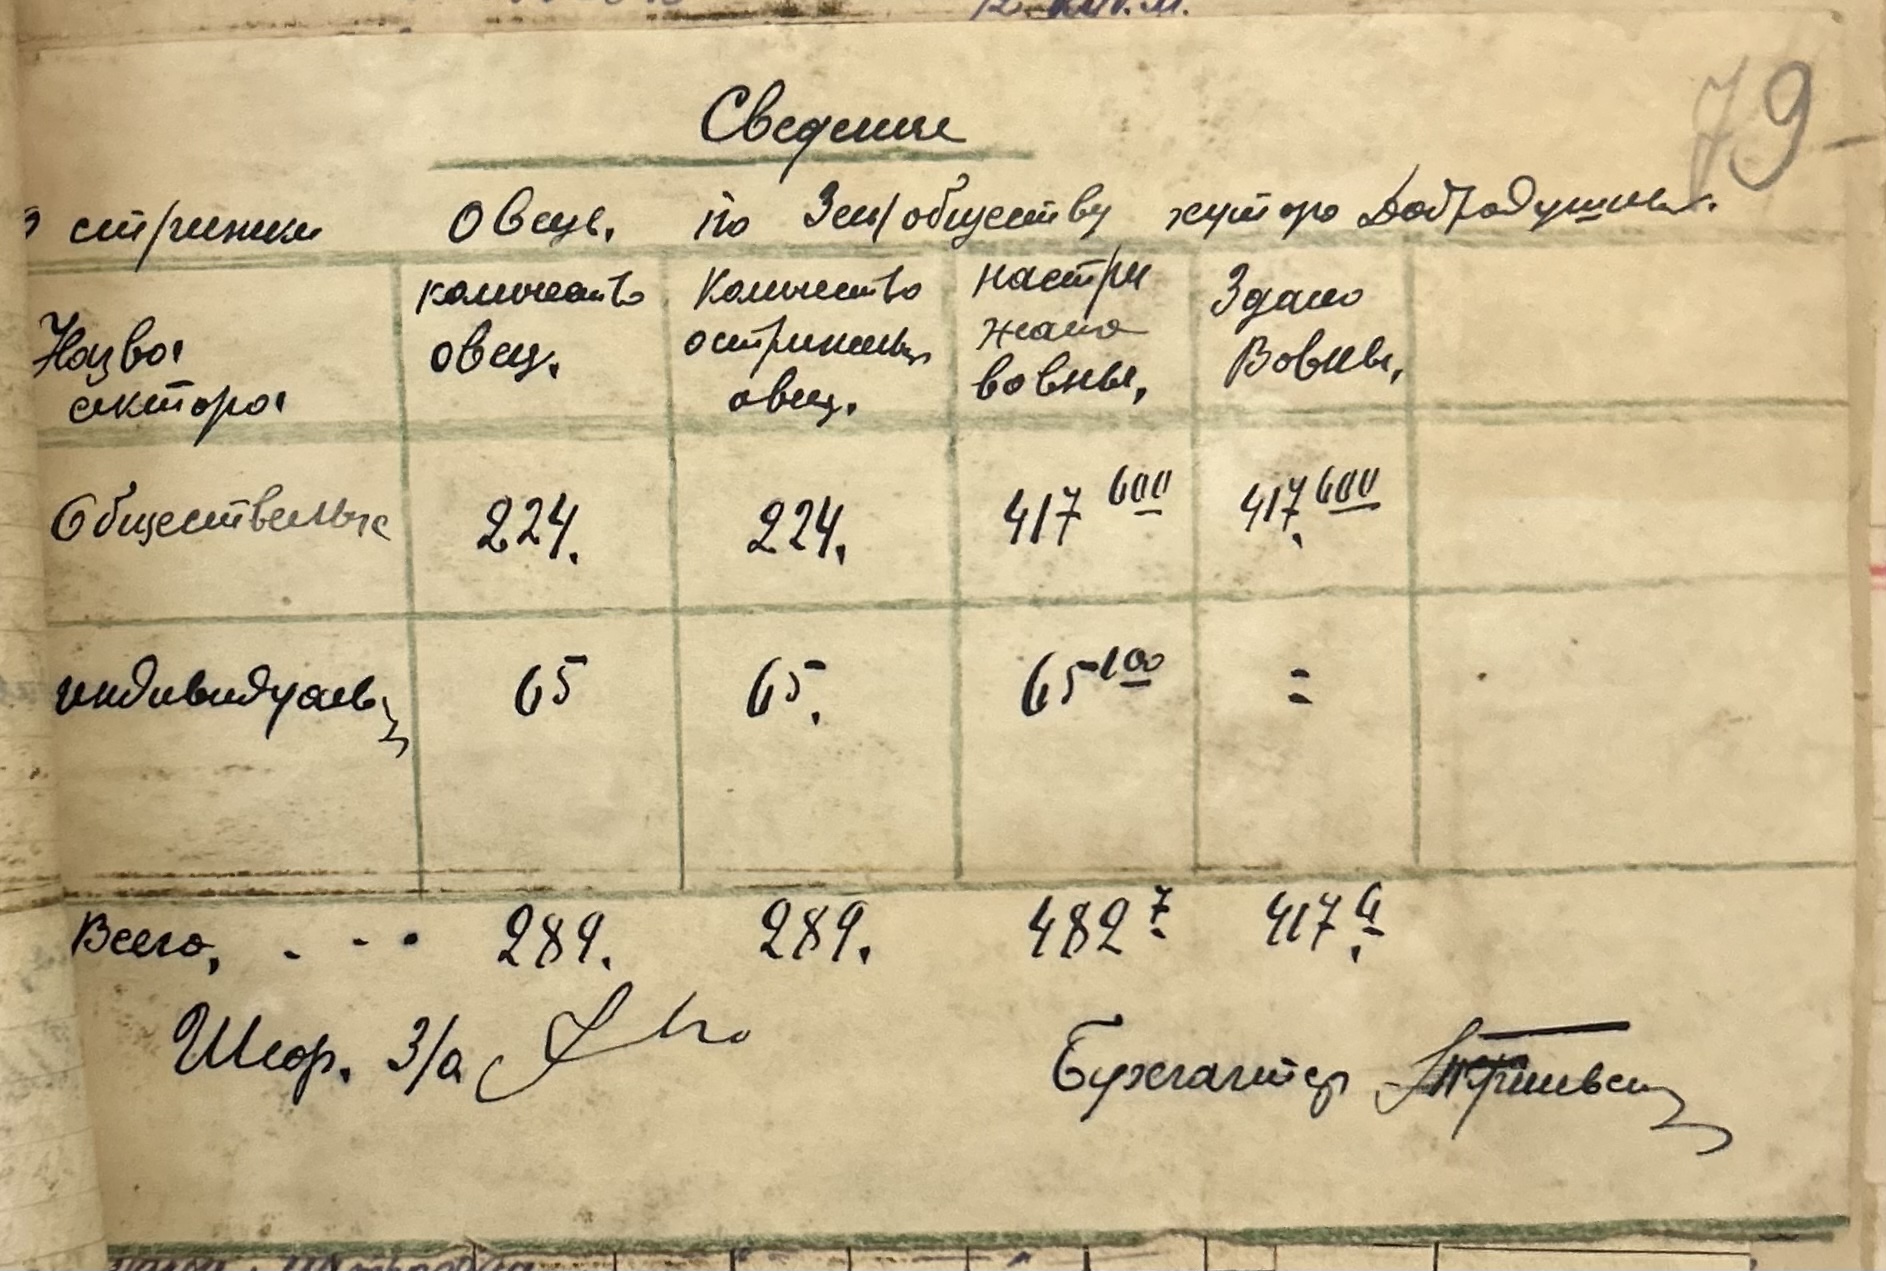 79
Сведение
О стрижки Овець. По Зем/обществу хутора Добродушин.
Назва сектора | количество овец. | Количество остриженых овец. | настри жано вовны. | Здано Вовны.
Общественые | 224. | 224. | 417 600 | 417 600
индивидуаль | 65 | 65. | 65 100 | =
Всего, . - • 289. 289. 482 7 417 6
З/о
Бухгалтер